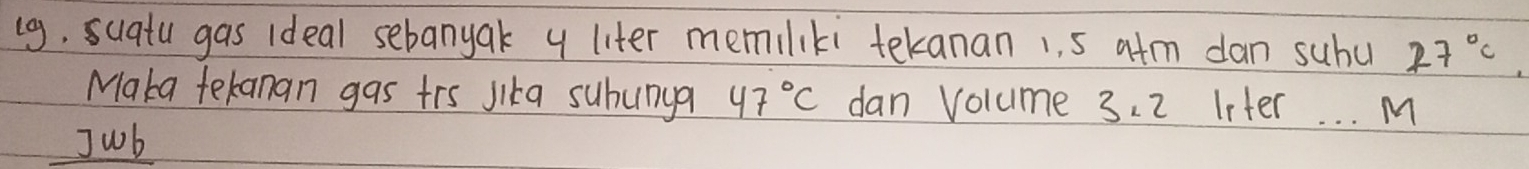 19. suatu gas ideal sebanyak 4 liter memiliki tekanan 1,5 atm dan suhu 27 °C.
Maka tekanan gas trs jika suhunya 47 °C dan Volume 3,2 liter ... M
Jwb